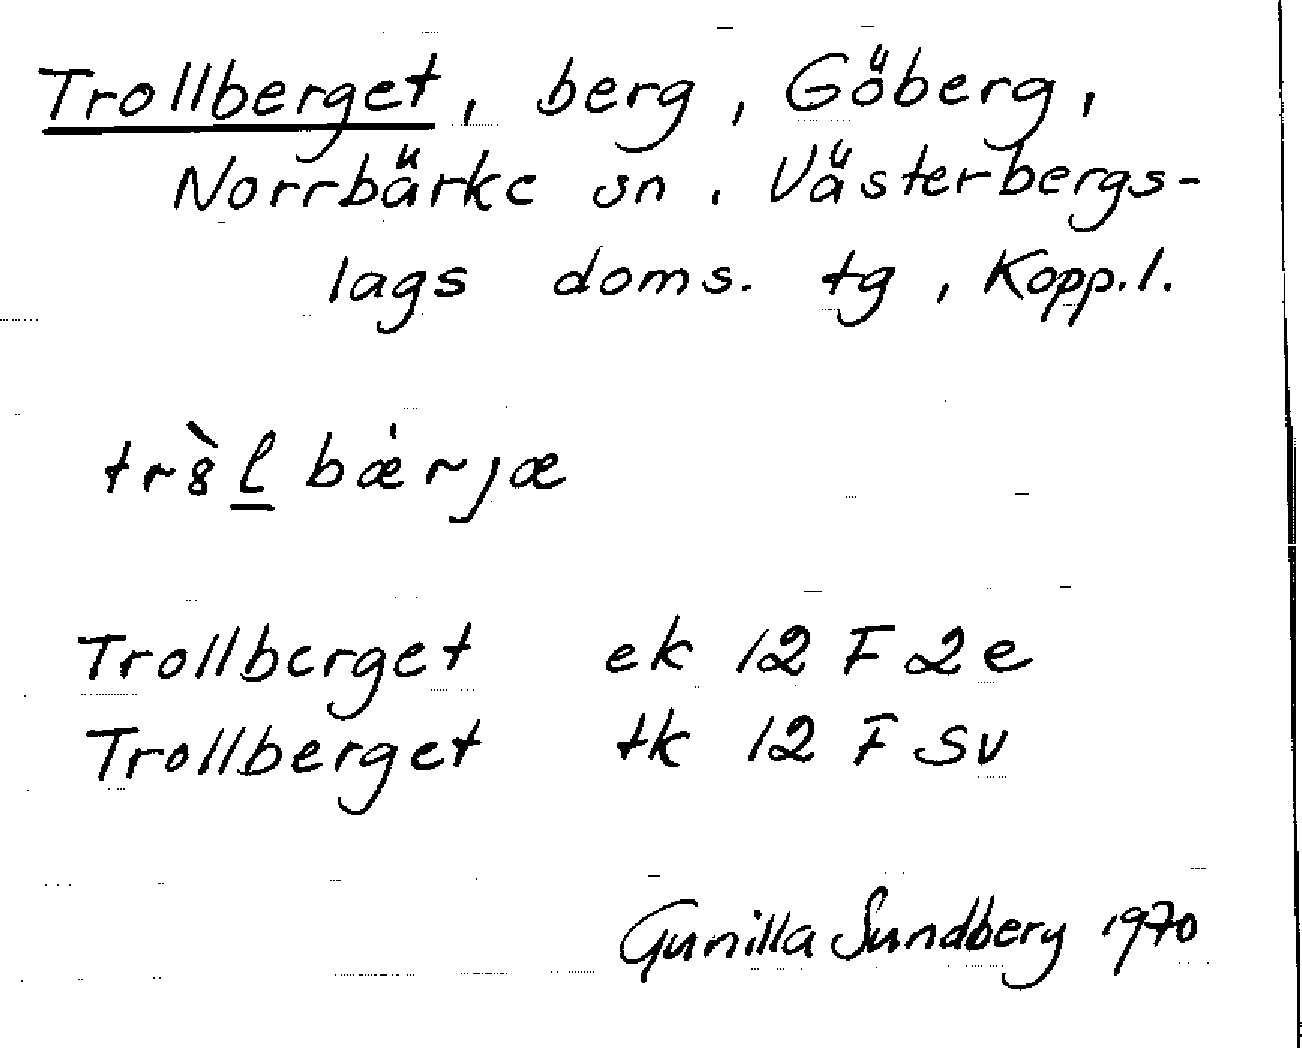 Trollberget, berg, Göberg,
Norrbärke sn, Västerbergs-
lags doms. tg, Kopp.l.
tr8̀l bæ̀rjæ
Trollberget ek 12 F 2e
Trollberget tk 12 F SV
Gunilla Sundberg 1970